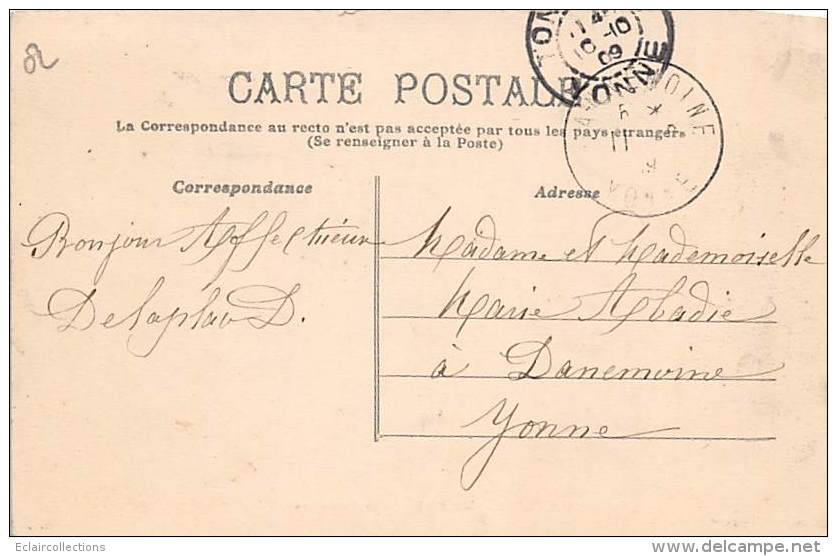 CARTE POSTALE
La Correspondance au recto n'est pas acceptée par tous les pays étrangers
(Se renseigner à la Poste)
Correspondance
Adresse
Bonjour Affectueux
Madame et Mademoiselle
Marie Abadie
à Danemoine
Yonne
10-10
09
YONNE
Eclaircollections
www.delcampe.net